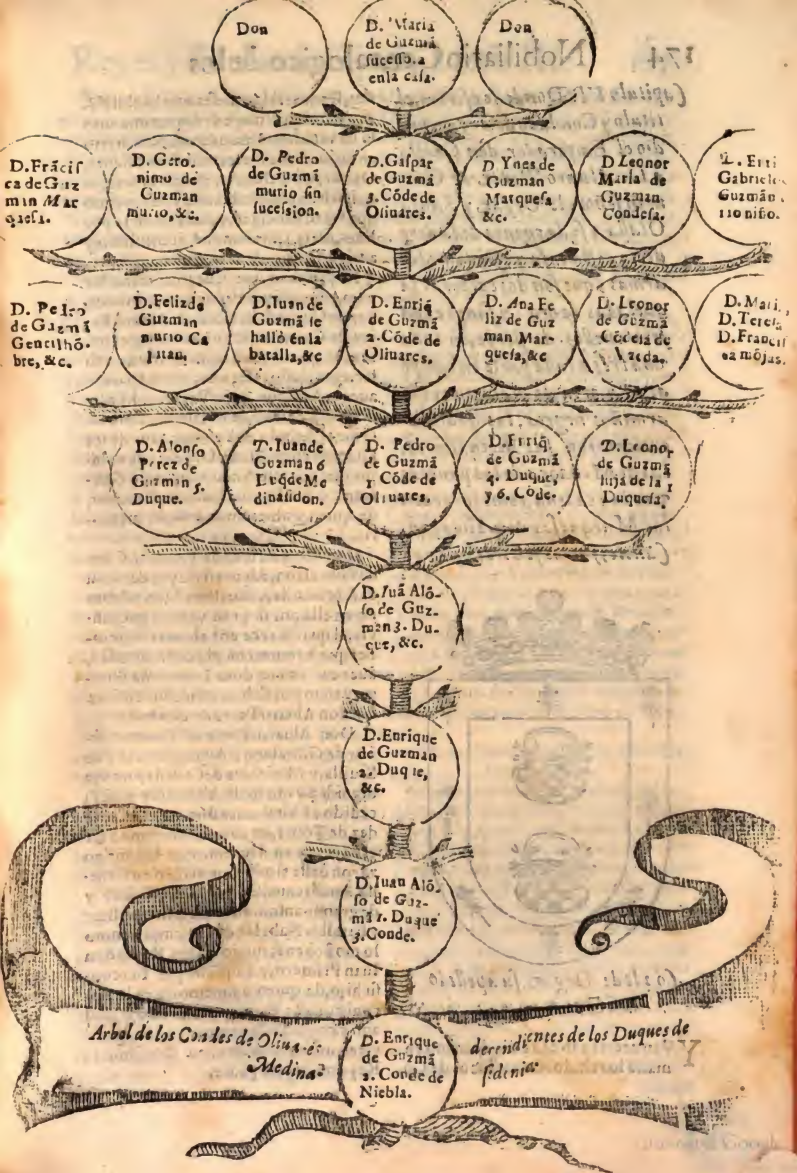 Don
D. Maria
de Guzmã
suceſſo.a
enla caſa.
Don
D. Fráciſ
ca de Guz
man Mar
queſa.
D. Gero.
nimo de
Guzman
murio, &c.
D. Pedro
de Guzmã
murio ſin
ſuceſsion.
D. Gaſpar
de Guzmã
3. Cõde de
Oliuares.
D Ynes de
Guzman
Marqueſa
&c.
D Leonor
Maria de
Guzman,
Condeſa.
Gabriel
Guzmán
niño.
D. Pedro
de Guzmã
Gentilhõ-
bre, &c.
D. Feliz de
Guzman
murio Ca
pitan.
D. Iuan de
Guzmã ſe
halló en la
batalla, &c
D. Enriq̃
de Guzmã
2. Cõde de
Oliuares.
D. Ana Fe
liz de Guz
man Mar-
queſa, &c
D. Leonor
de Guzmã
D. Mari.
D. Tereſa
D. Franciſ
ca mõjas.
D. Alonſo
Perez de
Guzman 5.
Duque.
D. Iuan de
Guzman 6
Duq̃ de Me
dinaſidon.
D. Pedro
de Guzmã
1. Cõde de
Oliuares.
D. Enriq̃
de Guzmã
4. Duque,
y 6. Cõde.
D. Leonor
de Guzmã
hija de la 1
Duqueſa.
D. Iuã Alõ-
ſo de Guz-
man 3. Du-
que, &c.
D. Enrique
de Guzman
2. Duque,
&c.
D. Iuan Alõ-
ſo de Guz-
mã 1. Duque
3. Conde.
Arbol de los Condes de Oliuares
D. Enrique
de Guzmã
2. Conde de
Niebla.
decendientes de los Duques de
Medina
ſidonia